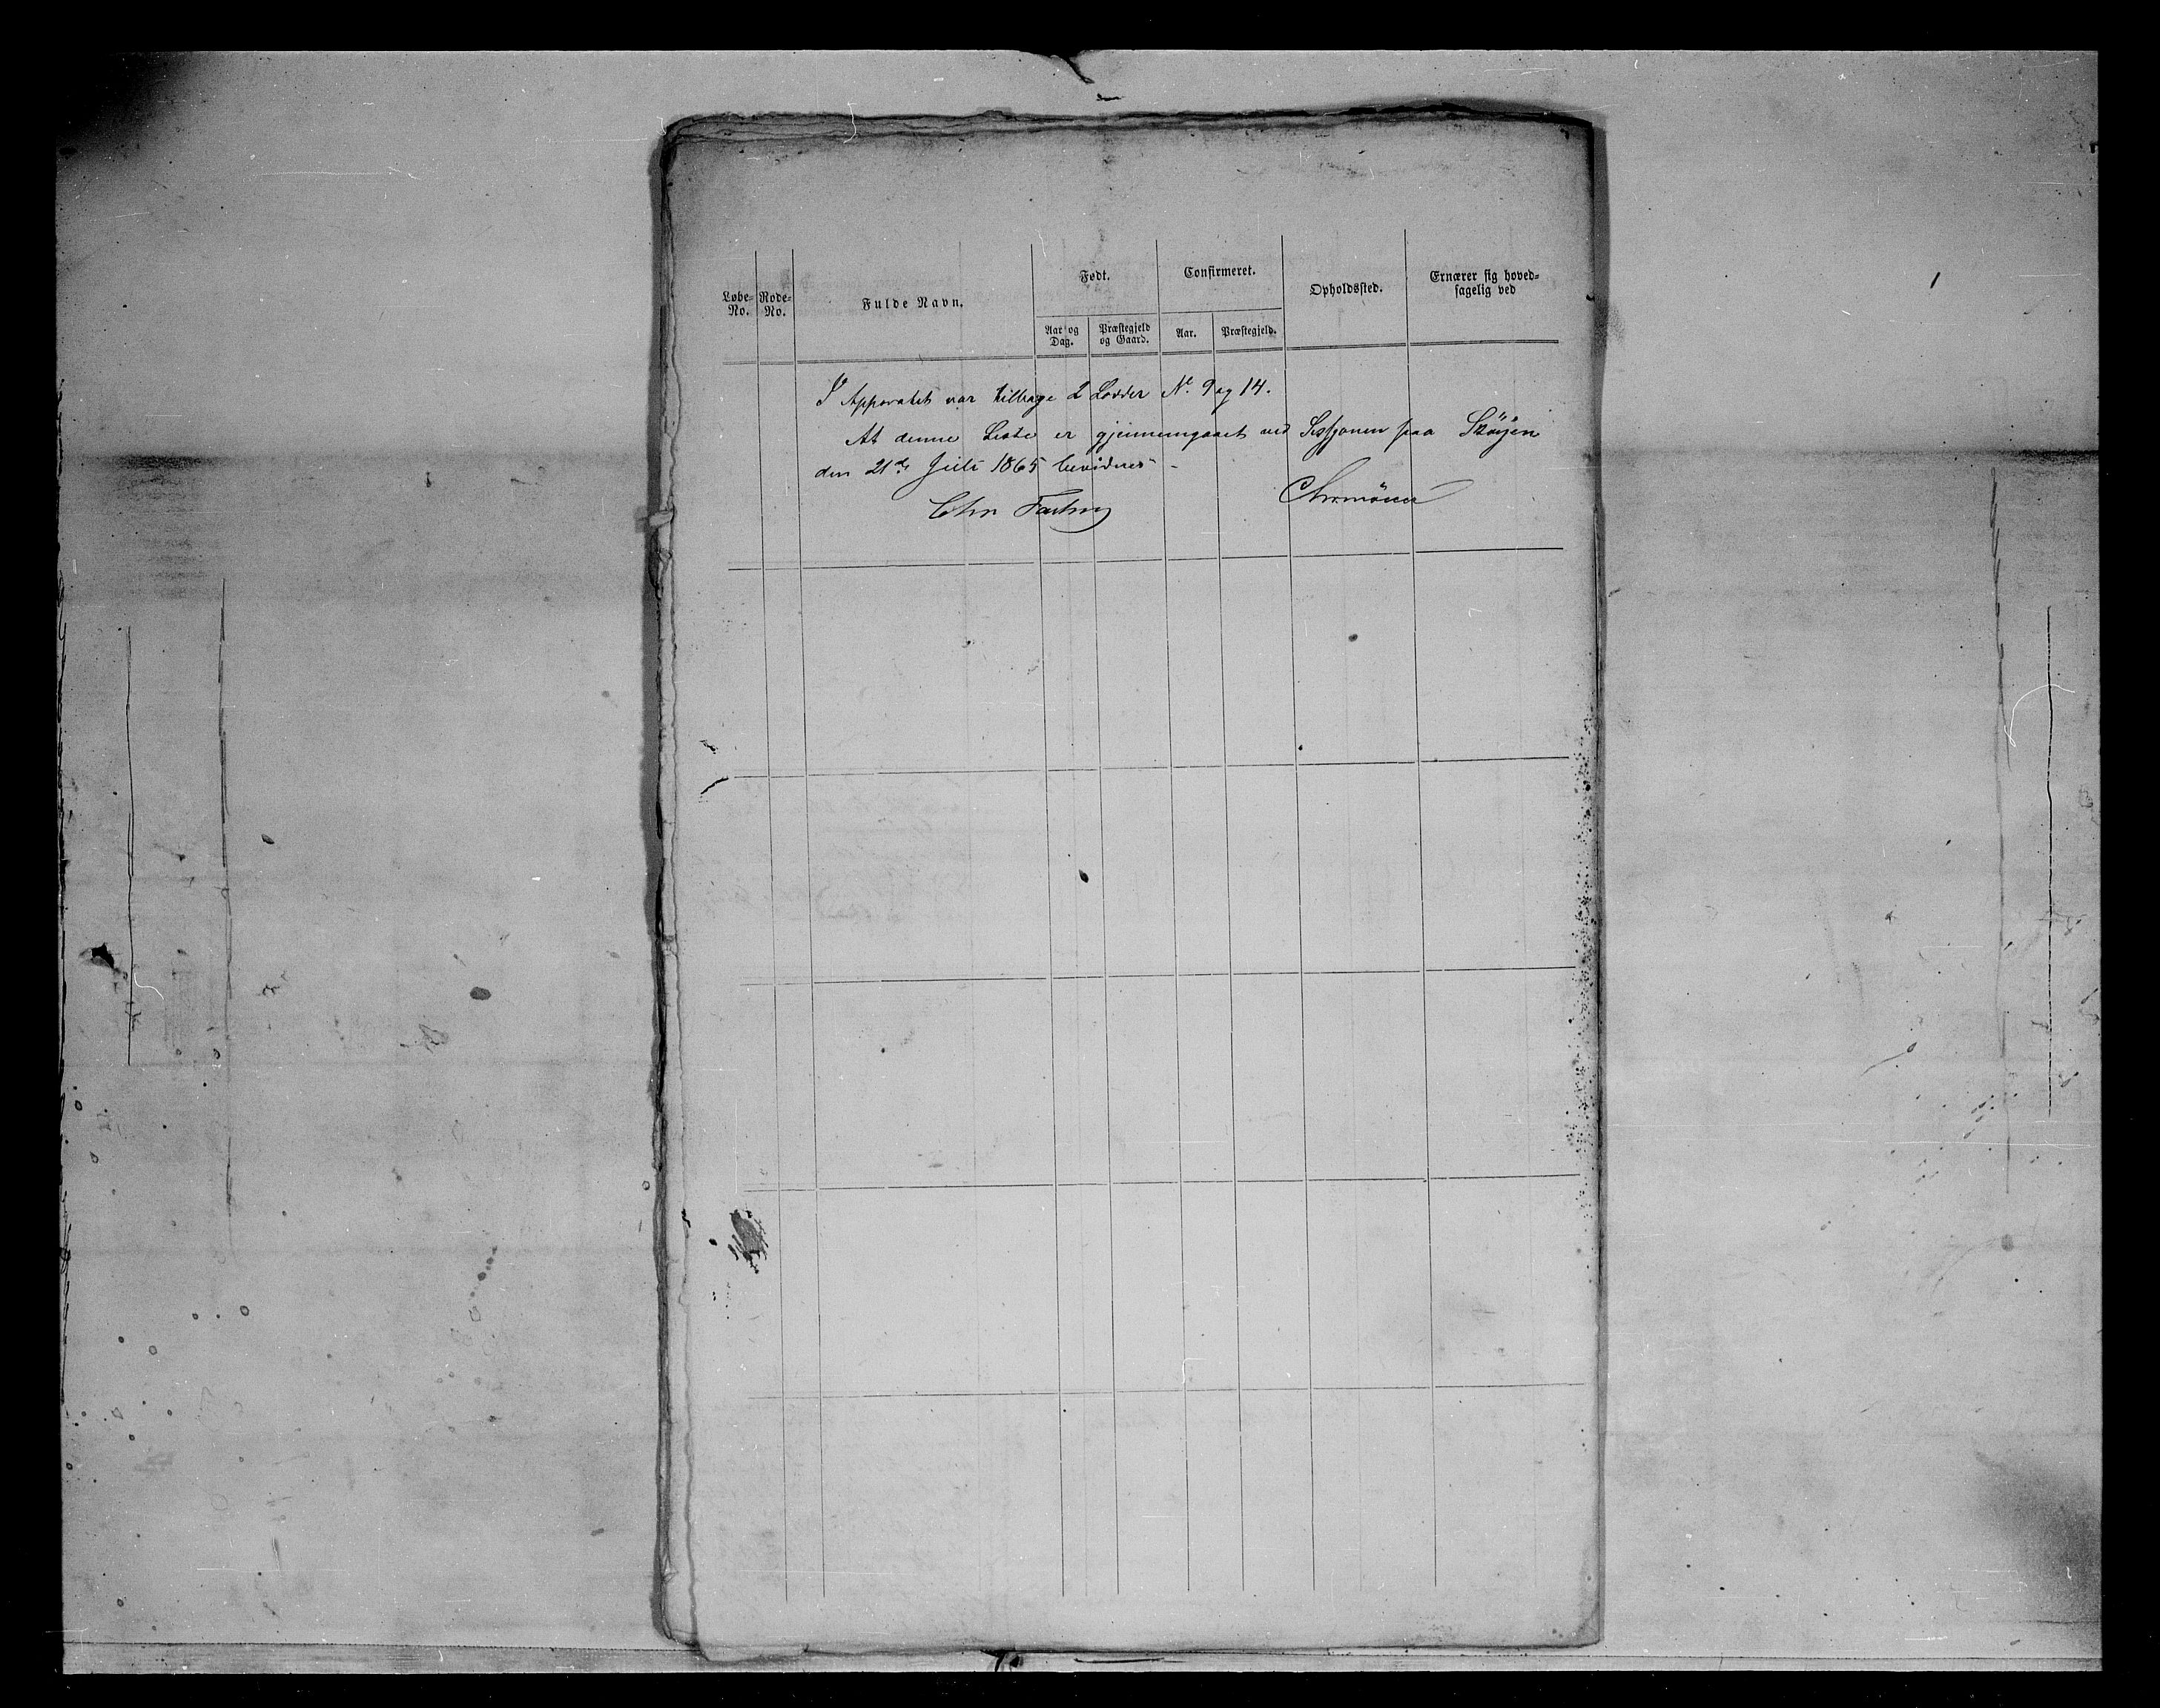 Løbe-No.
Rode-No.
Fulde Navn.
Født.
Aar og Dag.
Præstegjeld og Gaard.
Confirmeret.
Aar.
Præstegjeld.
Opholdssted.
Ernærer sig hoved-
sagelig ved
I Apparatet var tilbage 2 Lodder No. 9 og 14.
At denne Liste er gjennemgaaet ved Sessionen paa Støren
den 21de Juli 1865 bevidnes
Chr